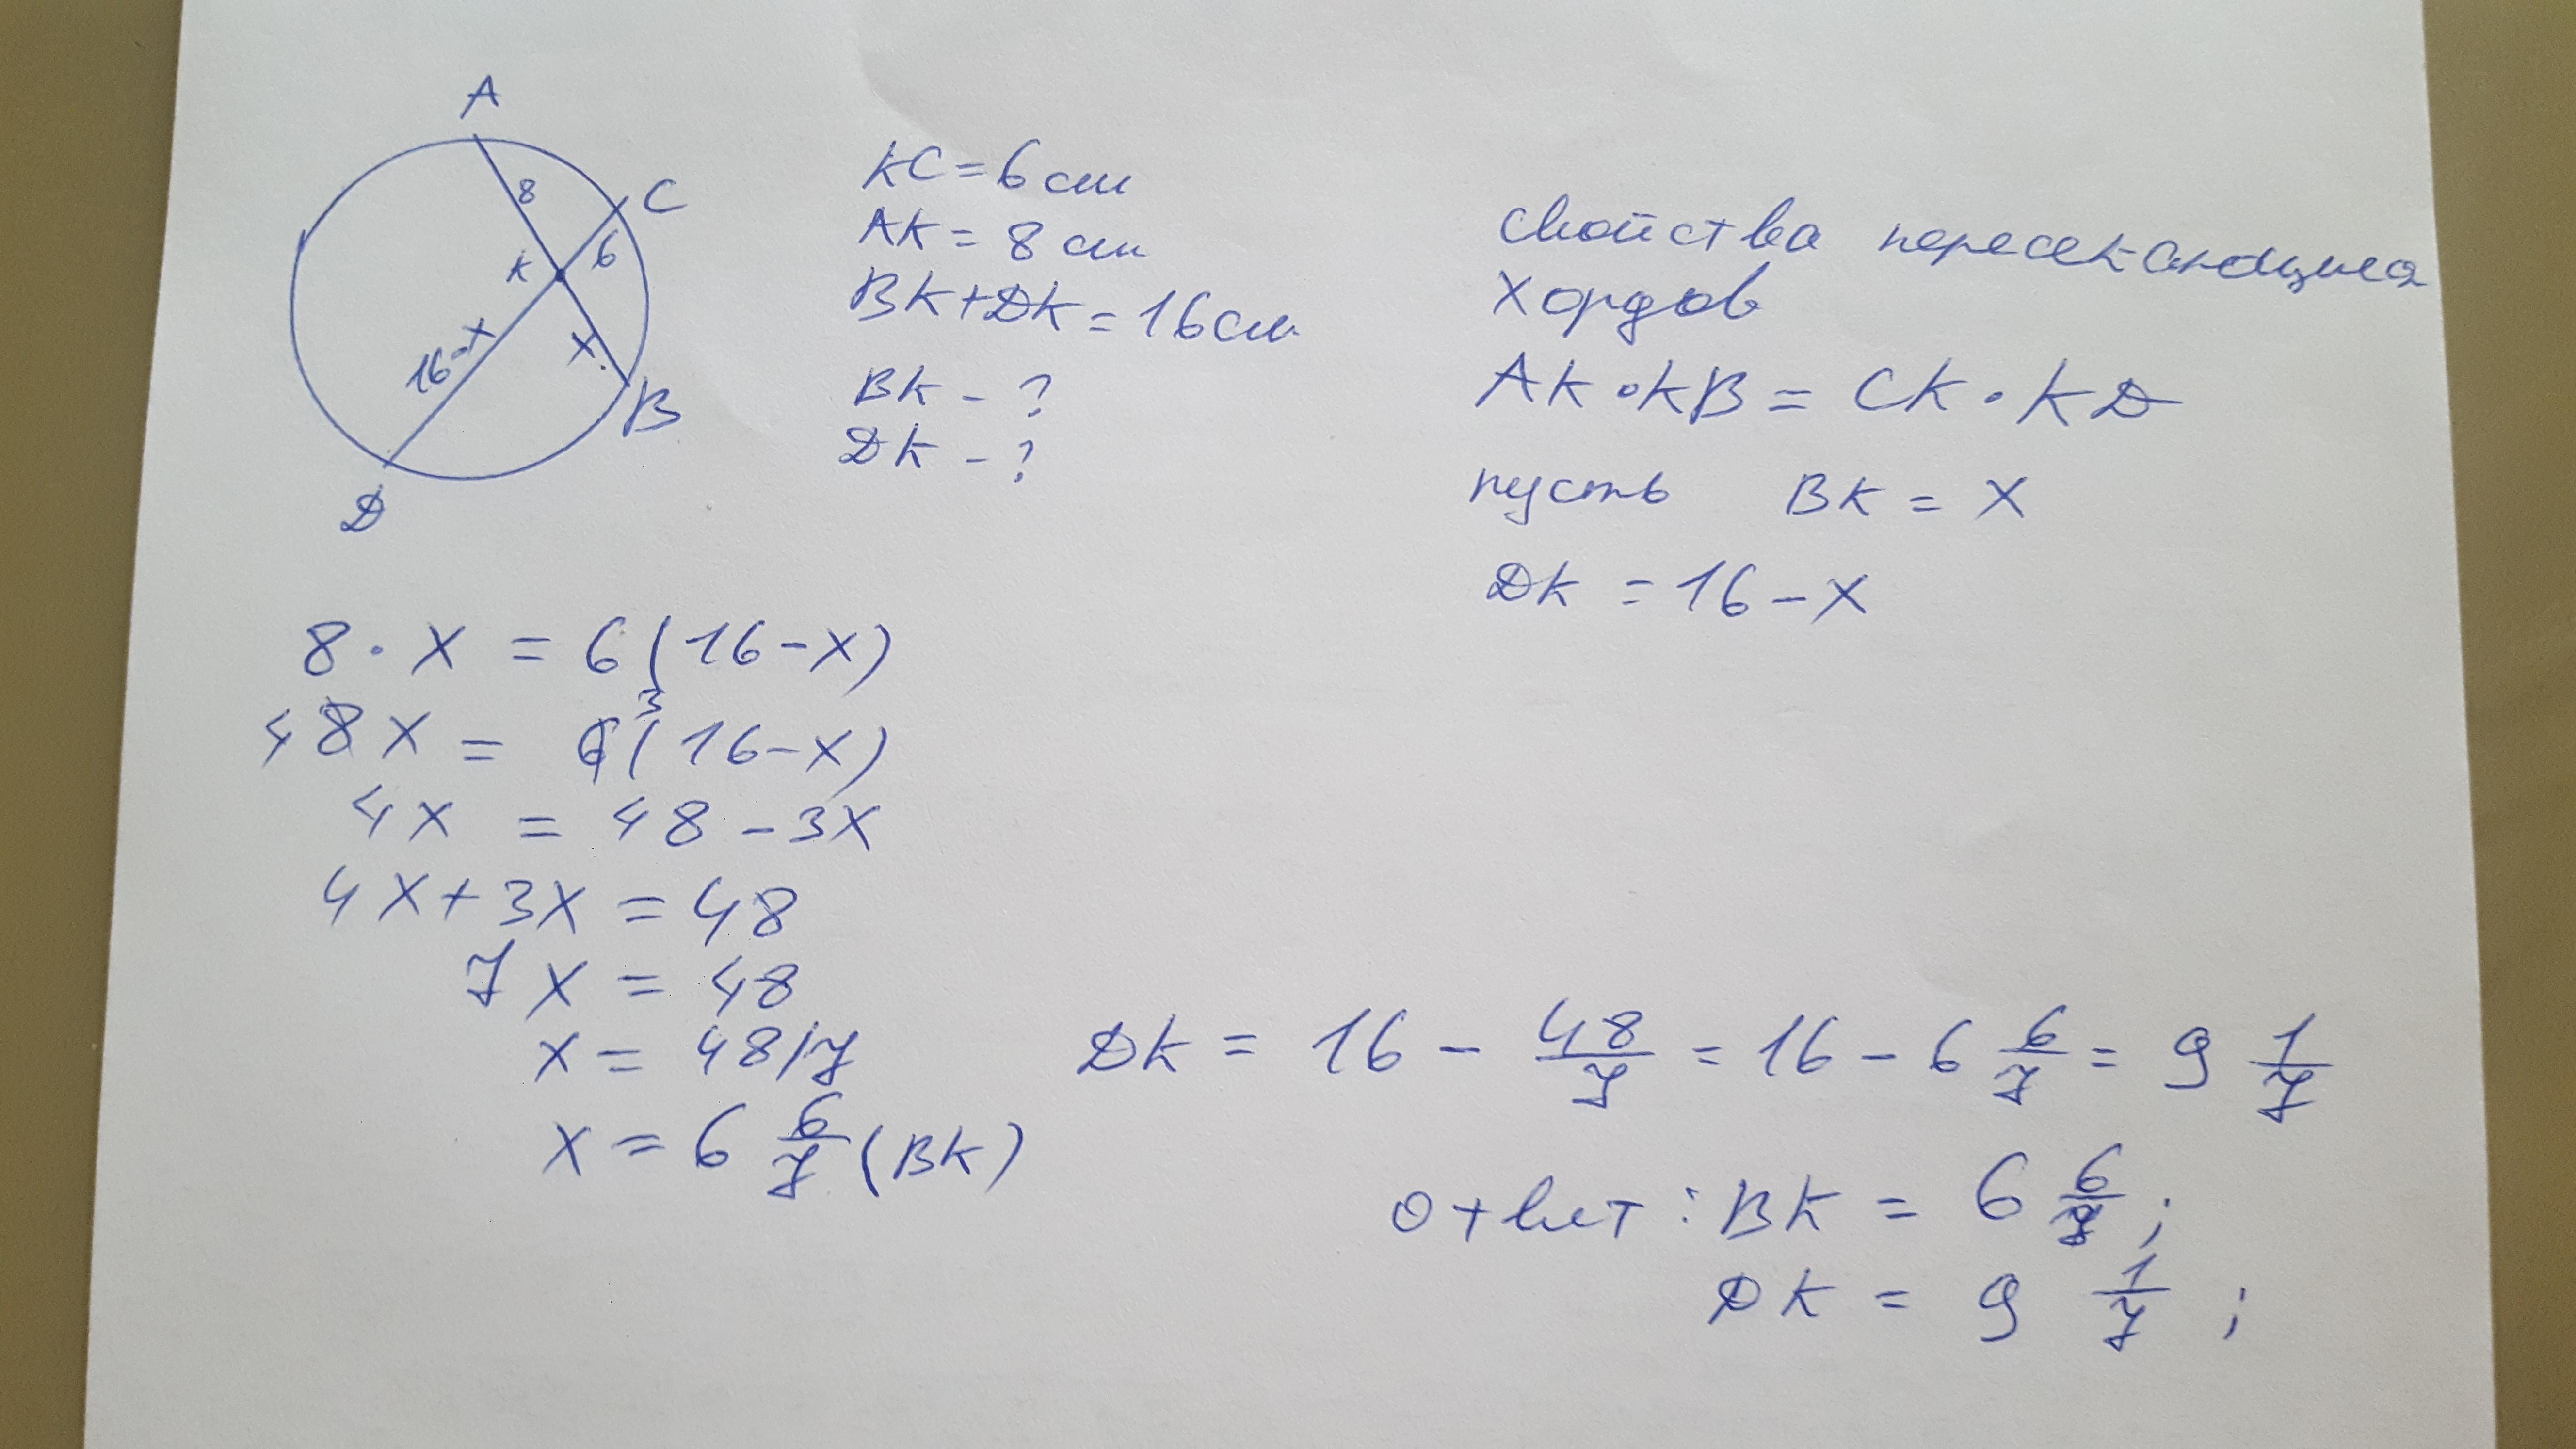 A
8
C
6
K
16-x
x
B
D
KC = 6 см
AK = 8 см
BK + DK = 16 см
BK - ?
DK - ?
свойства пересекающиеся
хордов
AK · KB = CK · KD
пусть BK = x
DK = 16 - x
8 · x = 6 (16 - x)
4 8 x = 6 3 (16 - x)
4x = 48 - 3x
4x + 3x = 48
7x = 48
x = 48/7
x = 6 6/7 (BK)
DK = 16 - 48/7 = 16 - 6 6/7 = 9 1/7
ответ: BK = 6 6/7 ;
DK = 9 1/7 ;